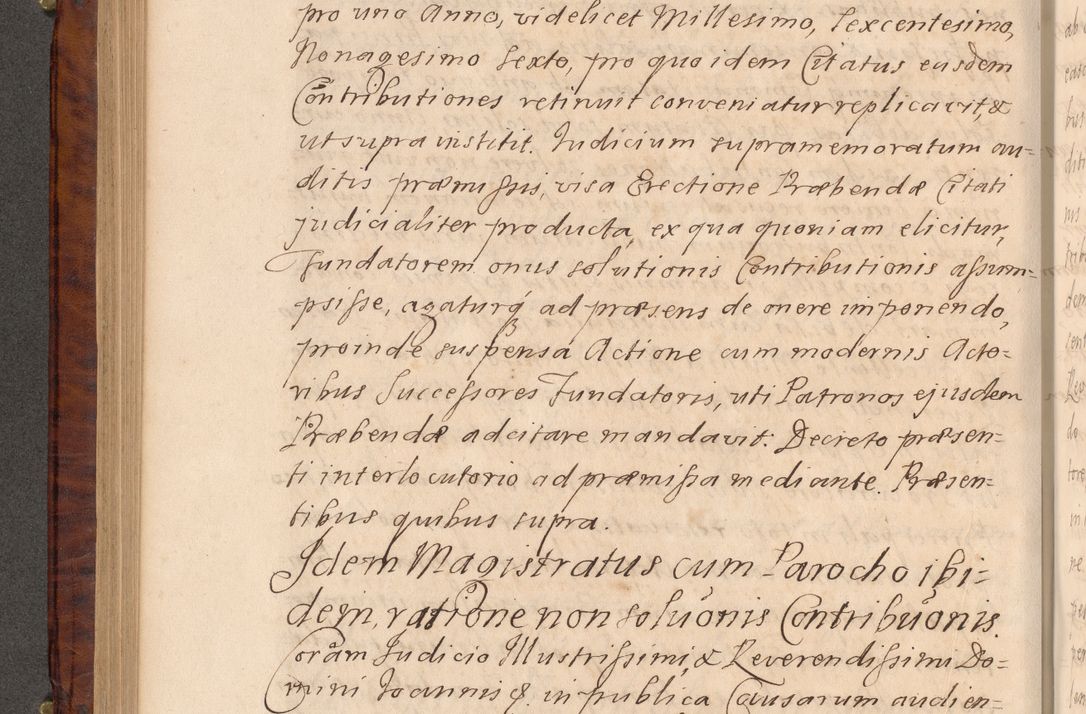 pro uno Anno, videlicet Millesimo, Sexcentesimo,
Nonagesimo Sexto, pro quo idem Citatus easdem
Contributiones retinuit conveniatur replicavit, &
ut supra institit. Judicium supramemoratum au=
ditis præmissis, visa Erectione Præbendæ Citati
judicialiter producta, ex qua quoniam elicitur,
Fundatorem onus solutionis Contributionis assum=
psisse, agaturq́ ad præsens de onere imponendo,
proinde suspensa Actione cum modernis Acto=
ribus Successores Fundatoris, uti Patronos ejusdem
Præbendæ adcitare mandavit: Decreto præsen=
ti interlocutorio ad præmissa mediante. Præsen=
tibus quibus supra.
Idem Magistratus cum Parocho ibi=
dem, ratione non soluõnis Contribuõnis.
Coram Judicio Illustrissimi, & Reverendissimi Do=
mini Joannis &. in publica Causarum audien=